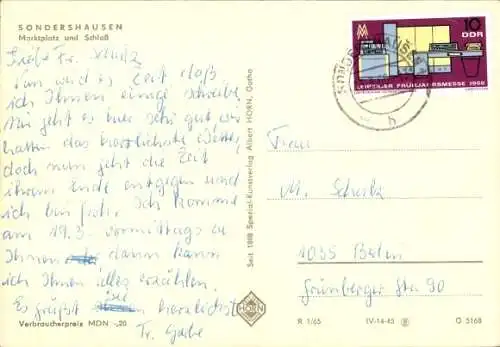 SONDERSHAUSEN
Marktplatz und Schloß
Liebe Fr. Schulz
Nun wird es Zeit daß
ich Ihnen einige schreibe.
Mir geht es hier sehr gut wir
hatten das herrlichste Wetter,
doch nun geht die Zeit
ihrem Ende entgegen und
ich bin froh. Ich komme
am 19.3. vormittags zu
Ihnen dann kann
ich Ihnen alles erzählen.
Es grüßt herzlichst
Fr.
Verbraucherpreis MDN -,20
Seit 1888 Spezial-Kunstverlag Albert HORN, Gotha
HORN
10
DDR
LEIPZIGER FRÜHJAHRSMESSE 1968
SONDERSHAUSEN
b
Frau
M. Schulz
1035 Berlin
Grünberger Str. 90
R 1/65 IV-14-45 G 5168